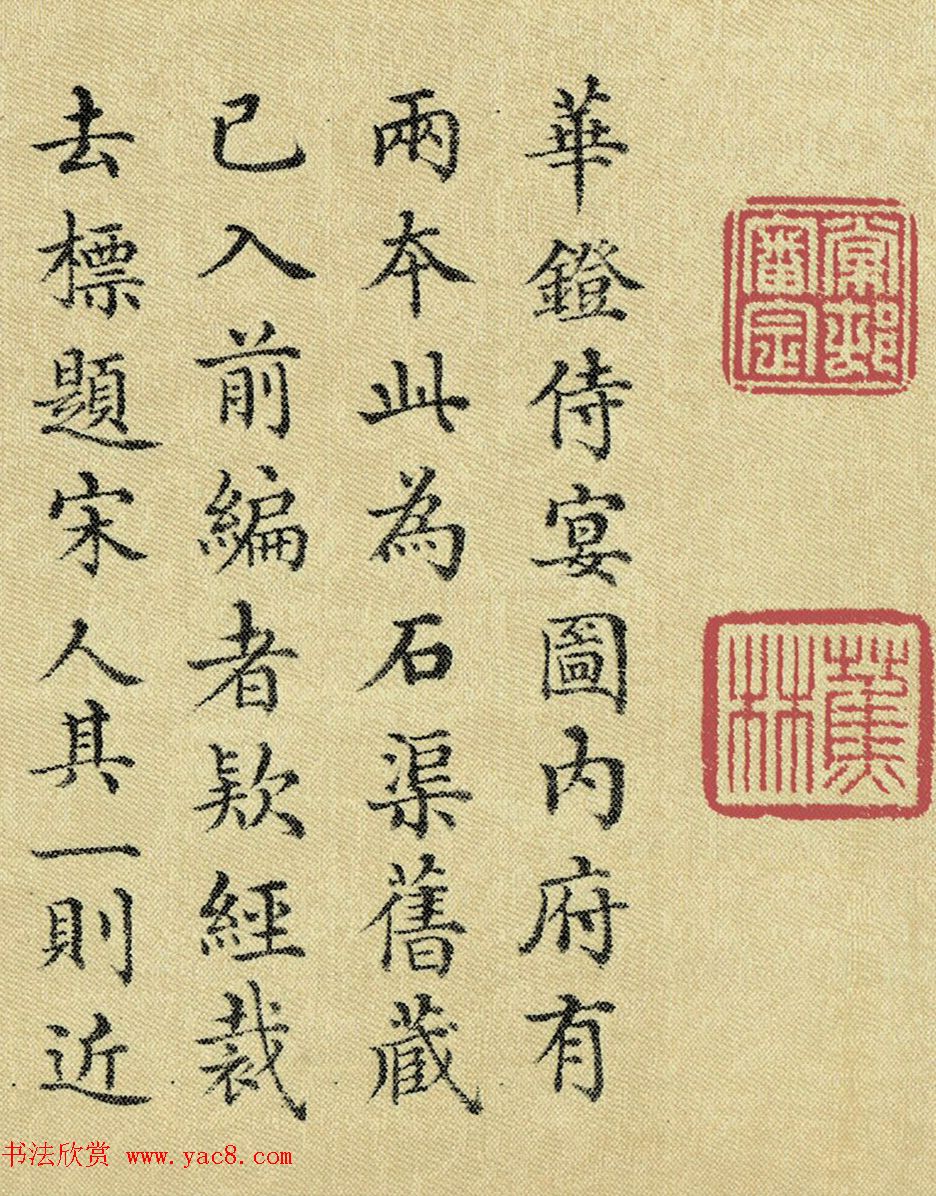 華鐙侍宴圖內府有
兩本此為石渠舊藏
已入前編者欵經裁
去標題宋人其一則近
蕉林
书法欣赏 www.yac8.com